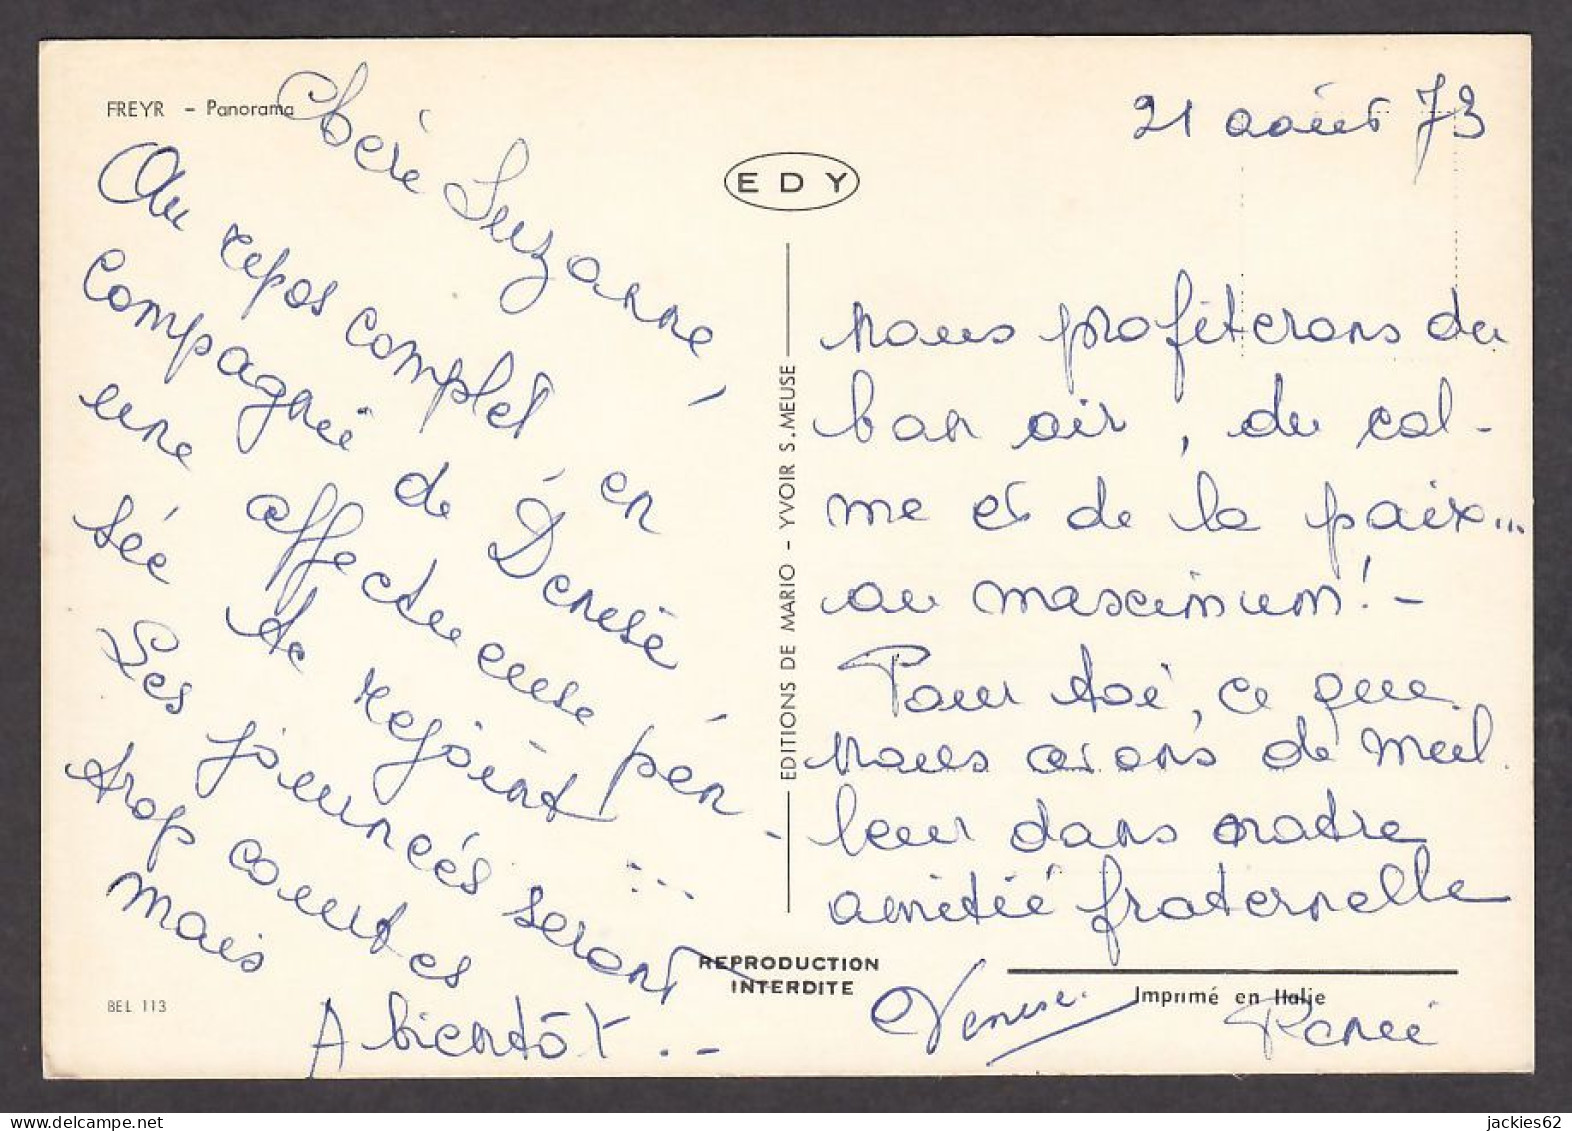 FREYR - Panorama
21 août 73
EDY
Chère Suzanne,
Au repos complet en
compagnie de Denise
une affectueuse pen-
sée te rejoint ...
Les journées seront
trop courtes
mais
nous profiterons du
bon air, du cal-
me et de la paix...
au maximum! -
Pour toi, ce que
nous avons de meil
leur dans notre
amitié fraternelle
A bientôt . -
Denise.
Renée
EDITIONS DE MARIO - YVOIR S. MEUSE
REPRODUCTION
INTERDITE
Imprimé en Italie
BEL 113
jackies62